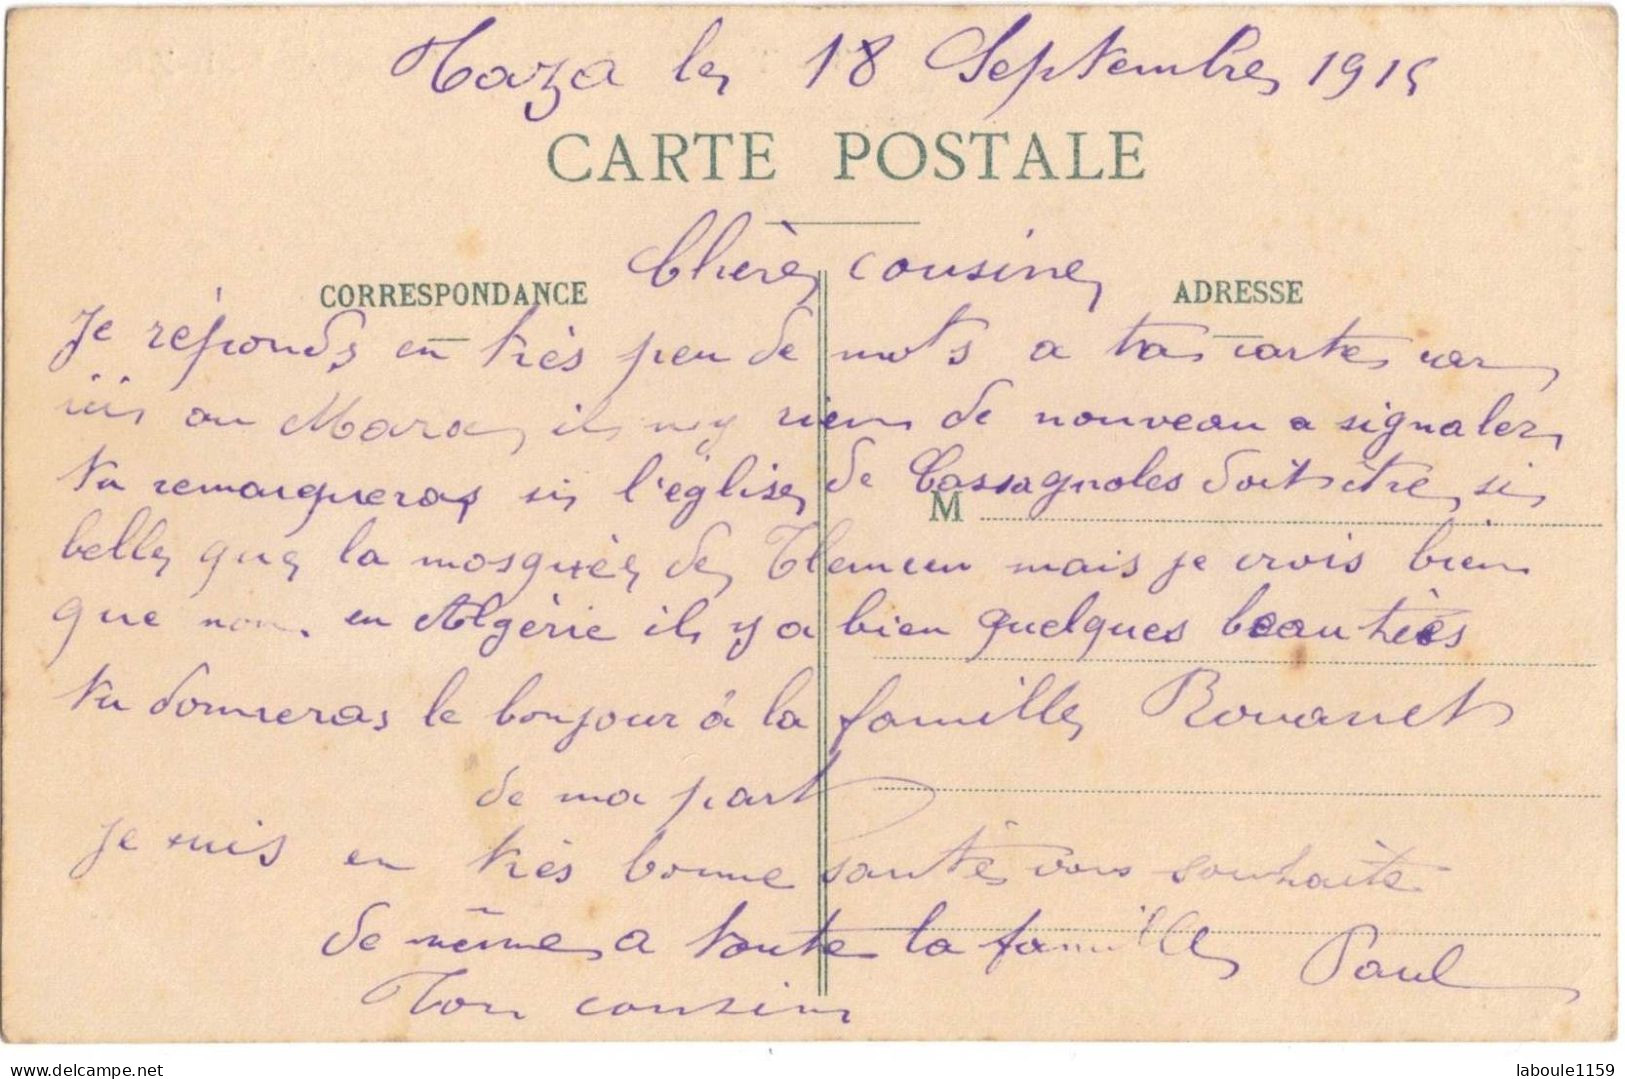 Taza le 18 Septembre 1915
CARTE POSTALE
Chère cousine
CORRESPONDANCE
ADRESSE
Je réponds en très peu de mots a ta carte car
ici au Maroc il n'y rien de nouveau a signaler
tu remarqueras si l'église de Cassagnoles doit être si
M
belle que la mosquée de Tlemcen mais je crois bien
que non. en Algérie il y a bien quelques beautées
tu donneras le bonjour à la famille Rouanet
de ma part
Je suis en très bonne santé vous souhaite
de même a toute la famille
Ton cousin Paul
delcampe.net
laboule1159